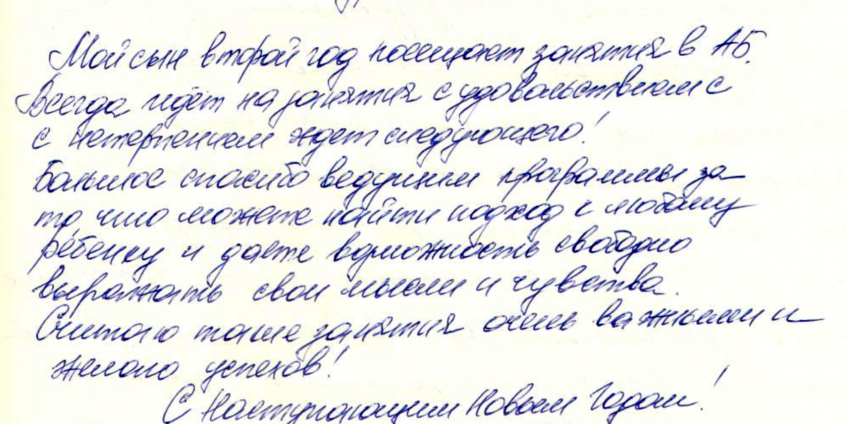 Мой сын второй год посещает занятия в АБ.
Всегда идёт на занятия с удовольствием с
с нетерпением ждет следующего!
Большое спасибо ведущим программы за
то, что можете найти подход к любому
ребёнку и даете возможность свободно
выражать свои мысли и чувства.
Считаю такие занятия очень важными и
желаю успехов!
С Наступающим Новым Годом!